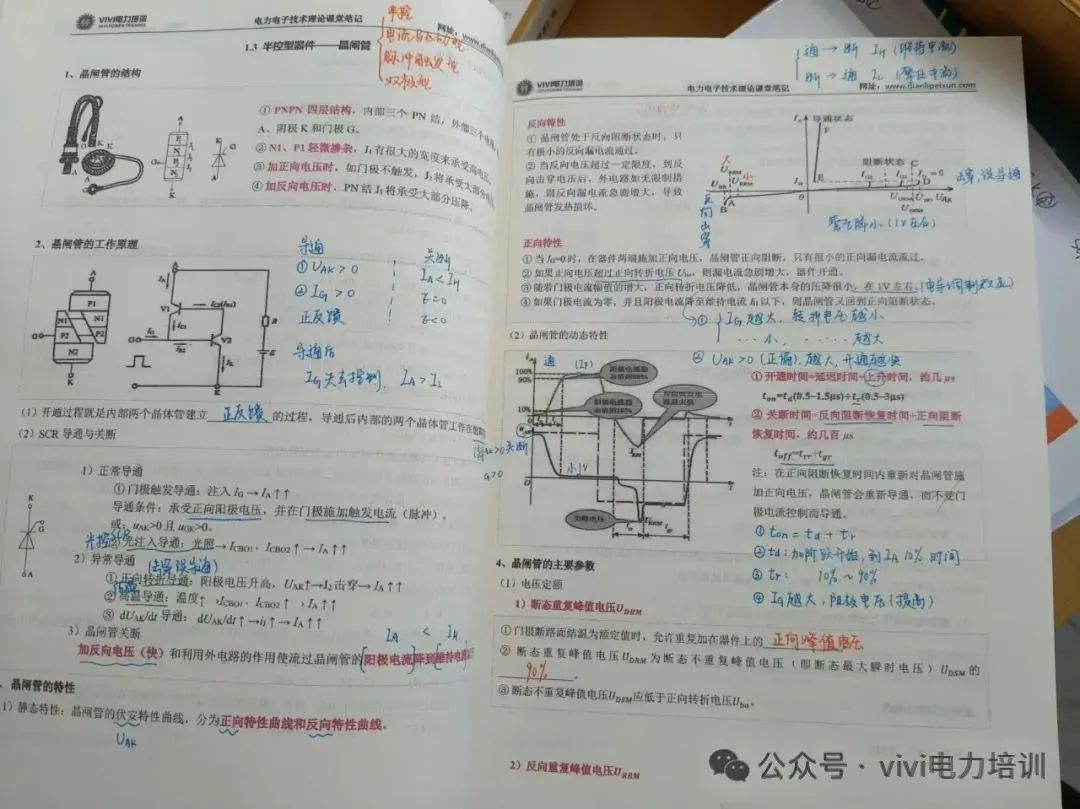 VIVI电力培训
电力电子技术理论课堂笔记
网址: www.dianli
1.3 半控型器件——晶闸管
半控
脉冲触发
双极型
1、晶闸管的结构
① PNPN 四层结构，内部三个 PN 结，外部三个
A、阴极 K 和门极 G。
② N1、P1 轻微掺杂，J₁有很大的宽度来承受高电压。
③ 加正向电压时，如门极不触发，J₂将承受大部分
④ 加反向电压时，PN 结 J₁将承受大部分压降。
2、晶闸管的工作原理
导通
① UAK > 0
② IG > 0
正反馈
导通后
IG失去控制, IA > IL
关断
IA < IH
（1）开通过程就是内部两个晶体管建立 正反馈 的过程，导通后内部的两个晶体管工作在
（2）SCR 导通与关断
1）正常导通
①门极触发导通：注入 IG → IA↑↑
导通条件：承受正向阳极电压，并在门极施加触发电流（脉冲）。
或：uAK>0 且 uGK>0。
②光注入导通：光照→ICBO1、ICBO2↑→IA↑↑
2）异常导通
①正向转折导通：阳极电压升高，UAK↑→J₂击穿→IA↑↑
②高温导通：温度↑，ICBO1、ICBO2↑，IA↑↑
③ dUAK/dt 导通：dUAK/dt↑→ij↑→IA↑↑
3）晶闸管关断
IA < IH
加反向电压（快）和利用外电路的作用使流过晶闸管的阳极电流降到维持电流
晶闸管的特性
1）静态特性：晶闸管的伏安特性曲线，分为正向特性曲线和反向特性曲线。
UAK
通→断 IH (维持电流)
断→通 IL (擎住电流)
VIVI电力培训
电力电子技术理论课堂笔记
网址: www.dianlipeixun.com
反向特性
① 晶闸管处于反向阻断状态时，只
有极小的反向漏电流通过。
② 当反向电压超过一定限度，到反
向击穿电压后，外电路如无限制措
施，则反向漏电流急剧增大，导致
晶闸管发热损坏。
导通状态
阻断状态
反向击穿
管压降小 (1V左右)
正向特性
① 当 IG=0 时，在器件两端施加正向电压，晶闸管正向阻断，只有很小的正向漏电流流过。
② 如果正向电压超过正向转折电压 Ubo，则漏电流急剧增大，器件开通。
③ 随着门极电流幅值的增大，正向转折电压降低，晶闸管本身的压降很小，在 1V 左右。(电导调制效应)
④ 如果门极电流为零，并且阳极电流降至维持电流 IH 以下，则晶闸管又回到正向阻断状态。
① IG越大，转折电压越小
小, 越大
② UAK>0 (正偏), 越大, 开通越快
（2）晶闸管的动态特性
100%
90%
10%
① 开通时间=延迟时间+上升时间，约几 μs
ton=td(0.5-1.5μs)+tr(0.5-3μs)
② 关断时间=反向阻断恢复时间+正向阻断
恢复时间，约几百 μs
toff=trr+tgr
注：在正向阻断恢复时间内重新对晶闸管施
加正向电压，晶闸管会重新导通，而不受门
极电流控制而导通。
① ton = td + tr
② td: 加阶跃开始, 到 IA 10% 时间
③ tr: 10% ~ 90%
④ IG越大, 阳极电压(提高)
4、晶闸管的主要参数
（1）电压定额
1）断态重复峰值电压UDRM
①门极断路而结温为额定值时，允许重复加在器件上的 正向峰值电压
② 断态重复峰值电压 UDRM 为断态不重复峰值电压（即断态最大瞬时电压）UDSM 的
90% 。
③断态不重复峰值电压UDSM应低于正向转折电压Ubo。
2）反向重复峰值电压URRM
公众号 · vivi电力培训